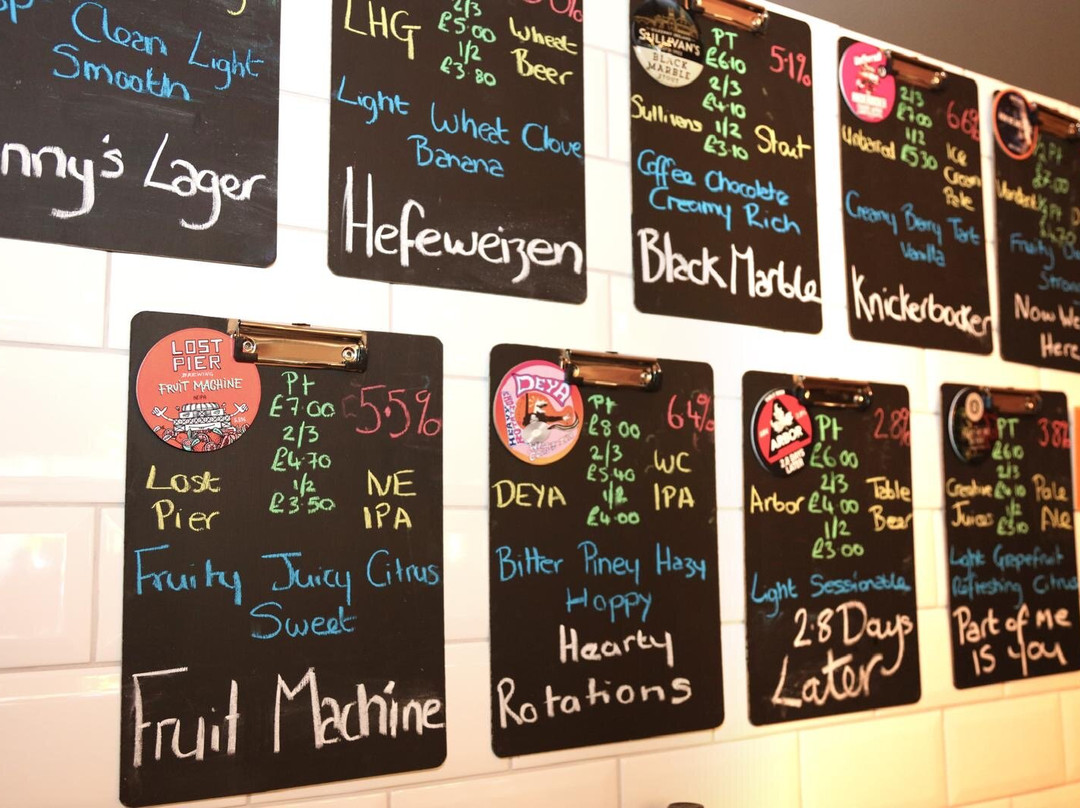 Clean Light
Smooth
nny's Lager
LHG
2/3
£5.00
1/2
£3.80
Wheat
Beer
Light Wheat Clove
Banana
Hefeweizen
SULLIVAN'S
BLACK
MARBLE
STOUT
PT
£6.10
2/3
£4.10
1/2
£3.10
5.1%
Sullivans
Stout
Coffee Chocolate
Creamy Rich
Black Marble
2/3
£7.00
1/2
£5.30
6.6%
Unbarred
Ice
Cream
Pale
Creamy Berry Tart
Vanilla
Knickerbocker
Fruity
Now We
Here
LOST
PIER
BREWING
FRUIT MACHINE
NEIPA
Pt
£7.00
2/3
£4.70
1/2
£3.50
5.5%
Lost
Pier
NE
IPA
Fruity Juicy Citrus
Sweet
Fruit Machine
DEYA
Pt
£8.00
2/3
£5.40
1/2
£4.00
6.4%
DEYA
WC
IPA
Bitter Piney Hazy
Hoppy
Hearty
Rotations
ARBOR
2.8 DAYS
LATER
PT
£6.00
2/3
£4.00
1/2
£3.00
2.8%
Arbor
Table
Beer
Light Sessionable
2.8 Days
Later
PT
£6.10
2/3
£4.10
1/2
£3.10
3.8%
Creative
Juices
Pale
Ale
Light Grapefruit
Refreshing Citrus
Part of me
is you